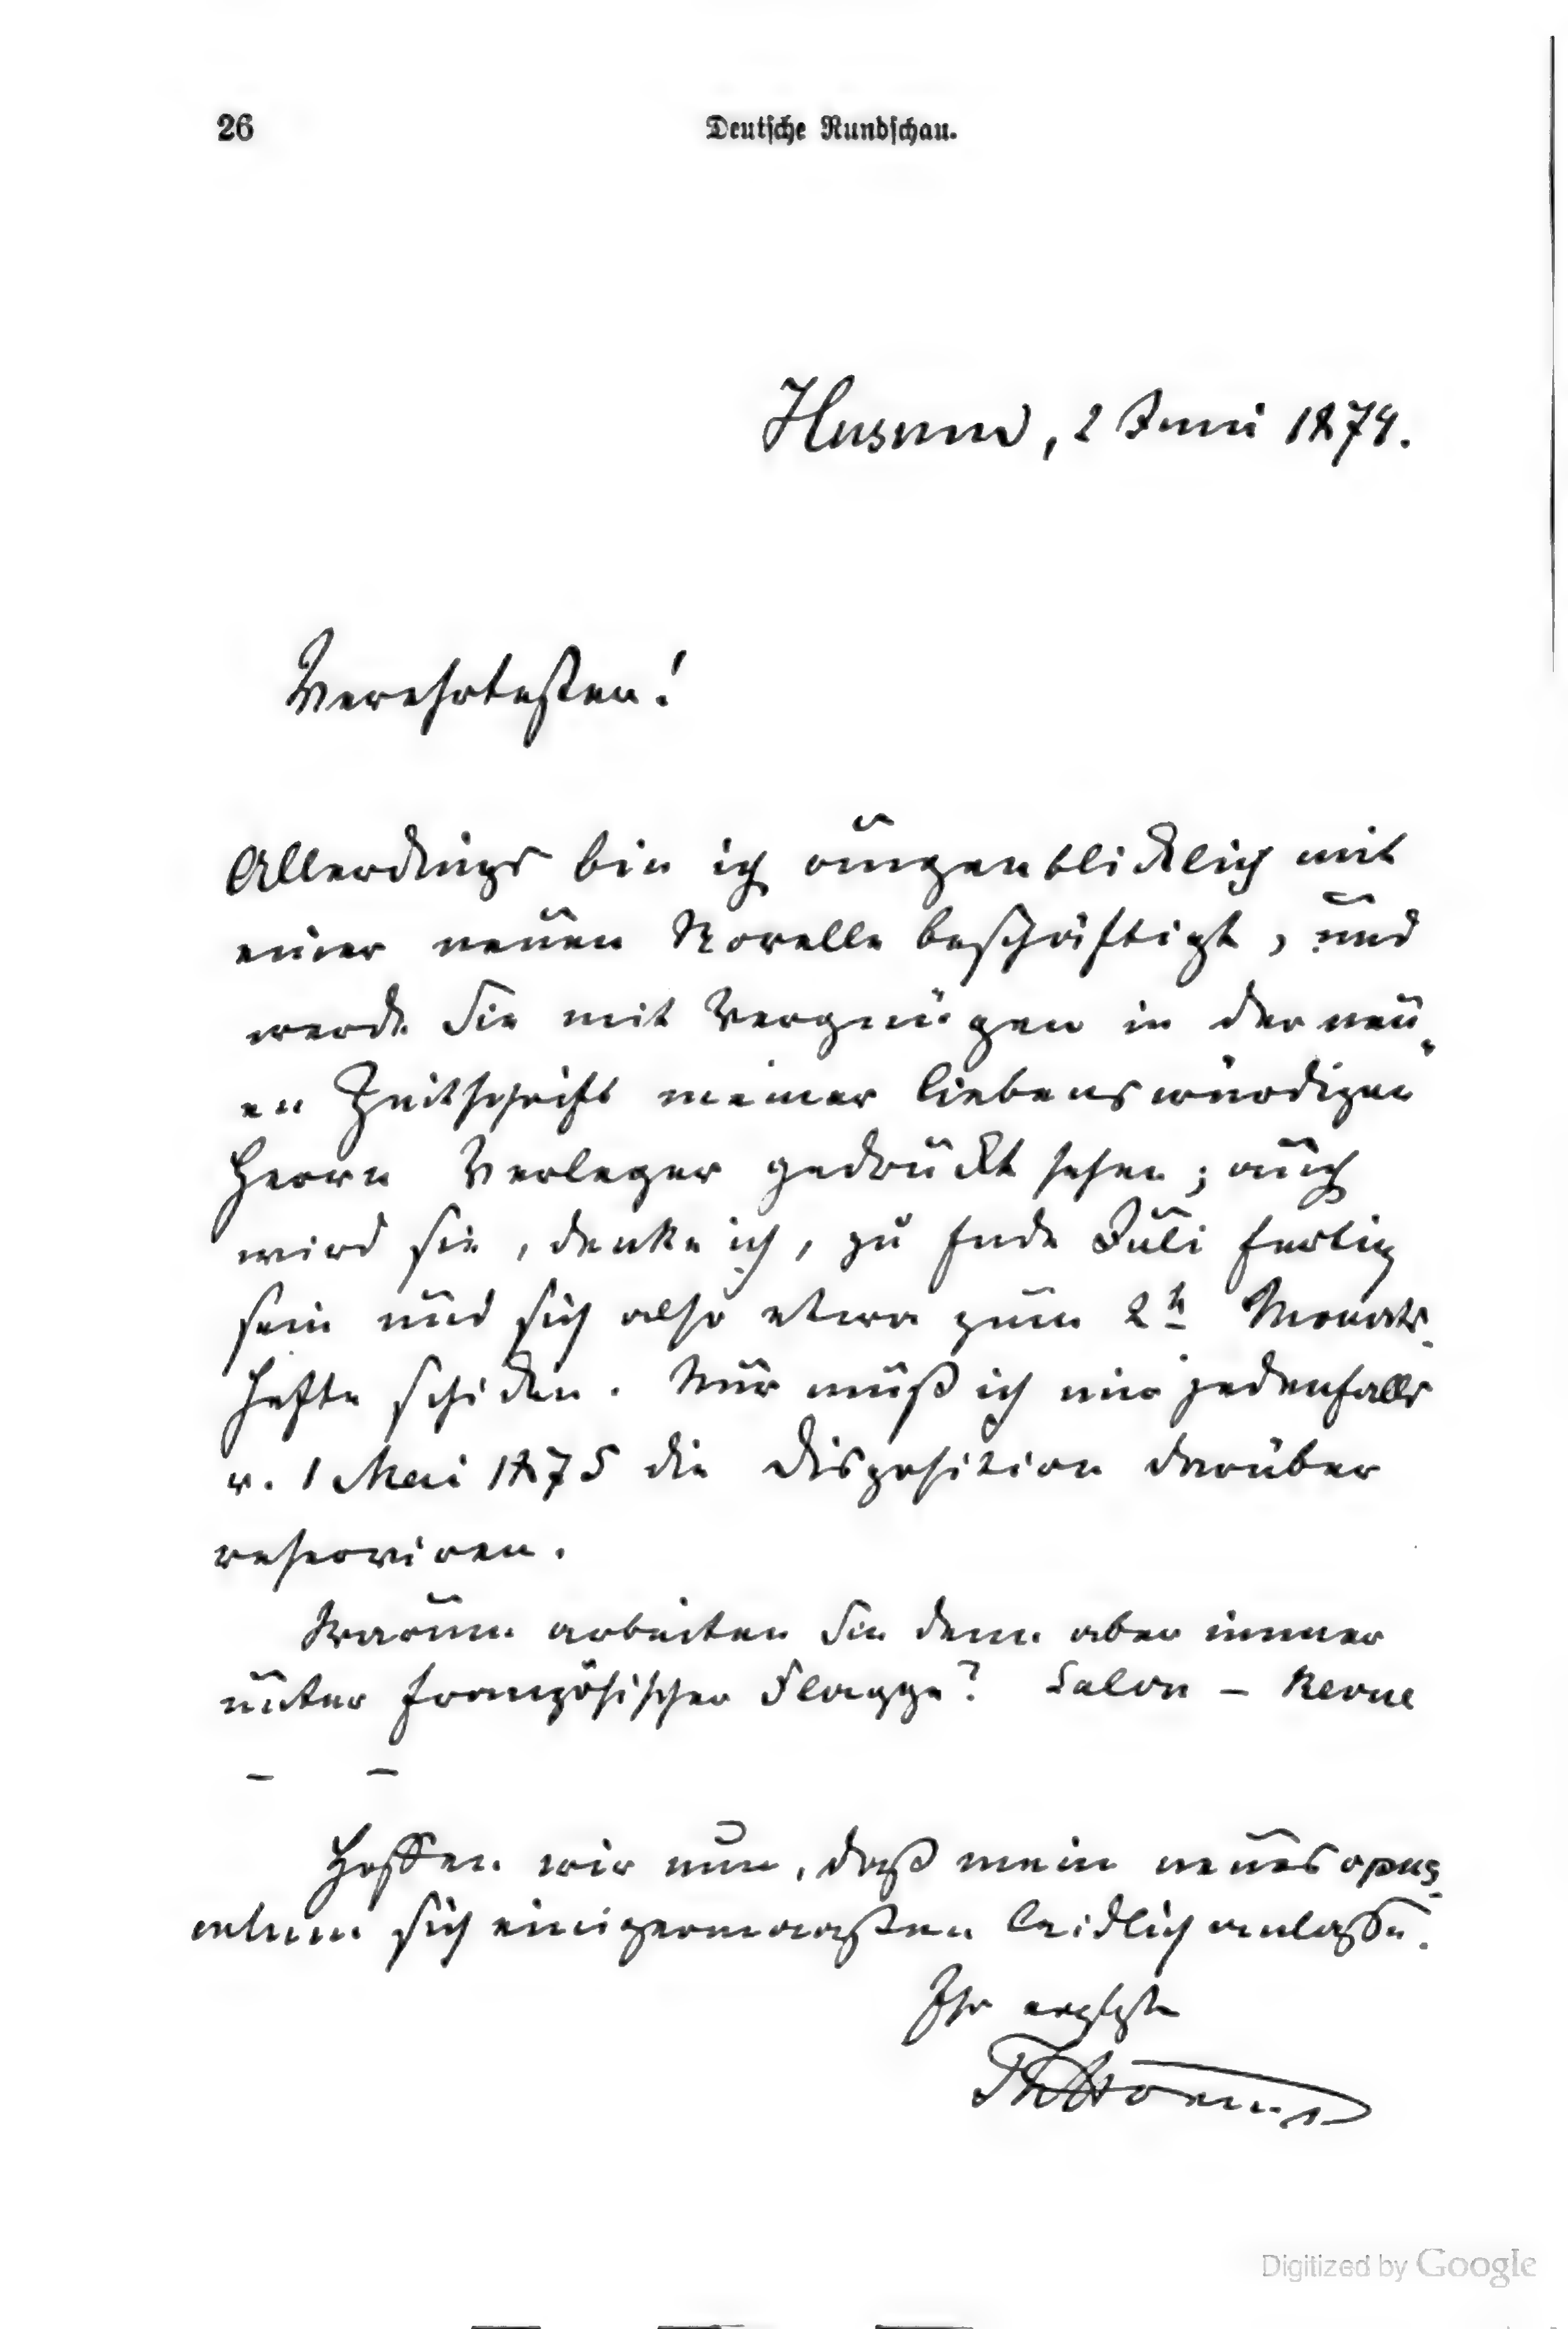 26
Deutsche Rundschau.
Husum, 2 Juni 1874.
Verehrtester!
Allerdings bin ich augenblicklich mit
einer neuen Novelle beschäftigt, und
werde sie mit Vergnügen in der neu-
en Zeitschrift meiner liebenswürdigen
Herrn Verleger gedruckt sehen; auch
wird sie, denke ich, zu Ende Juli fertig
sein und sich also etwa zum 2t Monats-
hefte schicken. Nur muß ich mir jedenfalls
v. 1 Mai 1875 die Disposition darüber
reserviren.
Warum arbeiten Sie denn aber immer
unter französischer Flagge? Salon – Revue
– –
Hoffen wir nun, daß mein neues opus-
culum sich einigermaaßen leidlich anlasse.
Ihr ergbste
ThStorm
Digitized by Google